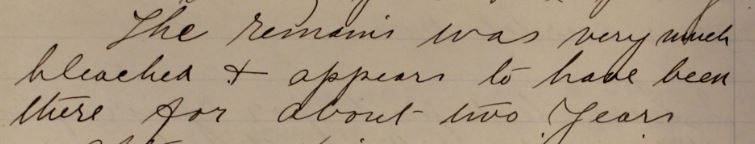 The remains was very much
bleached & appears to have been
there for about two Years